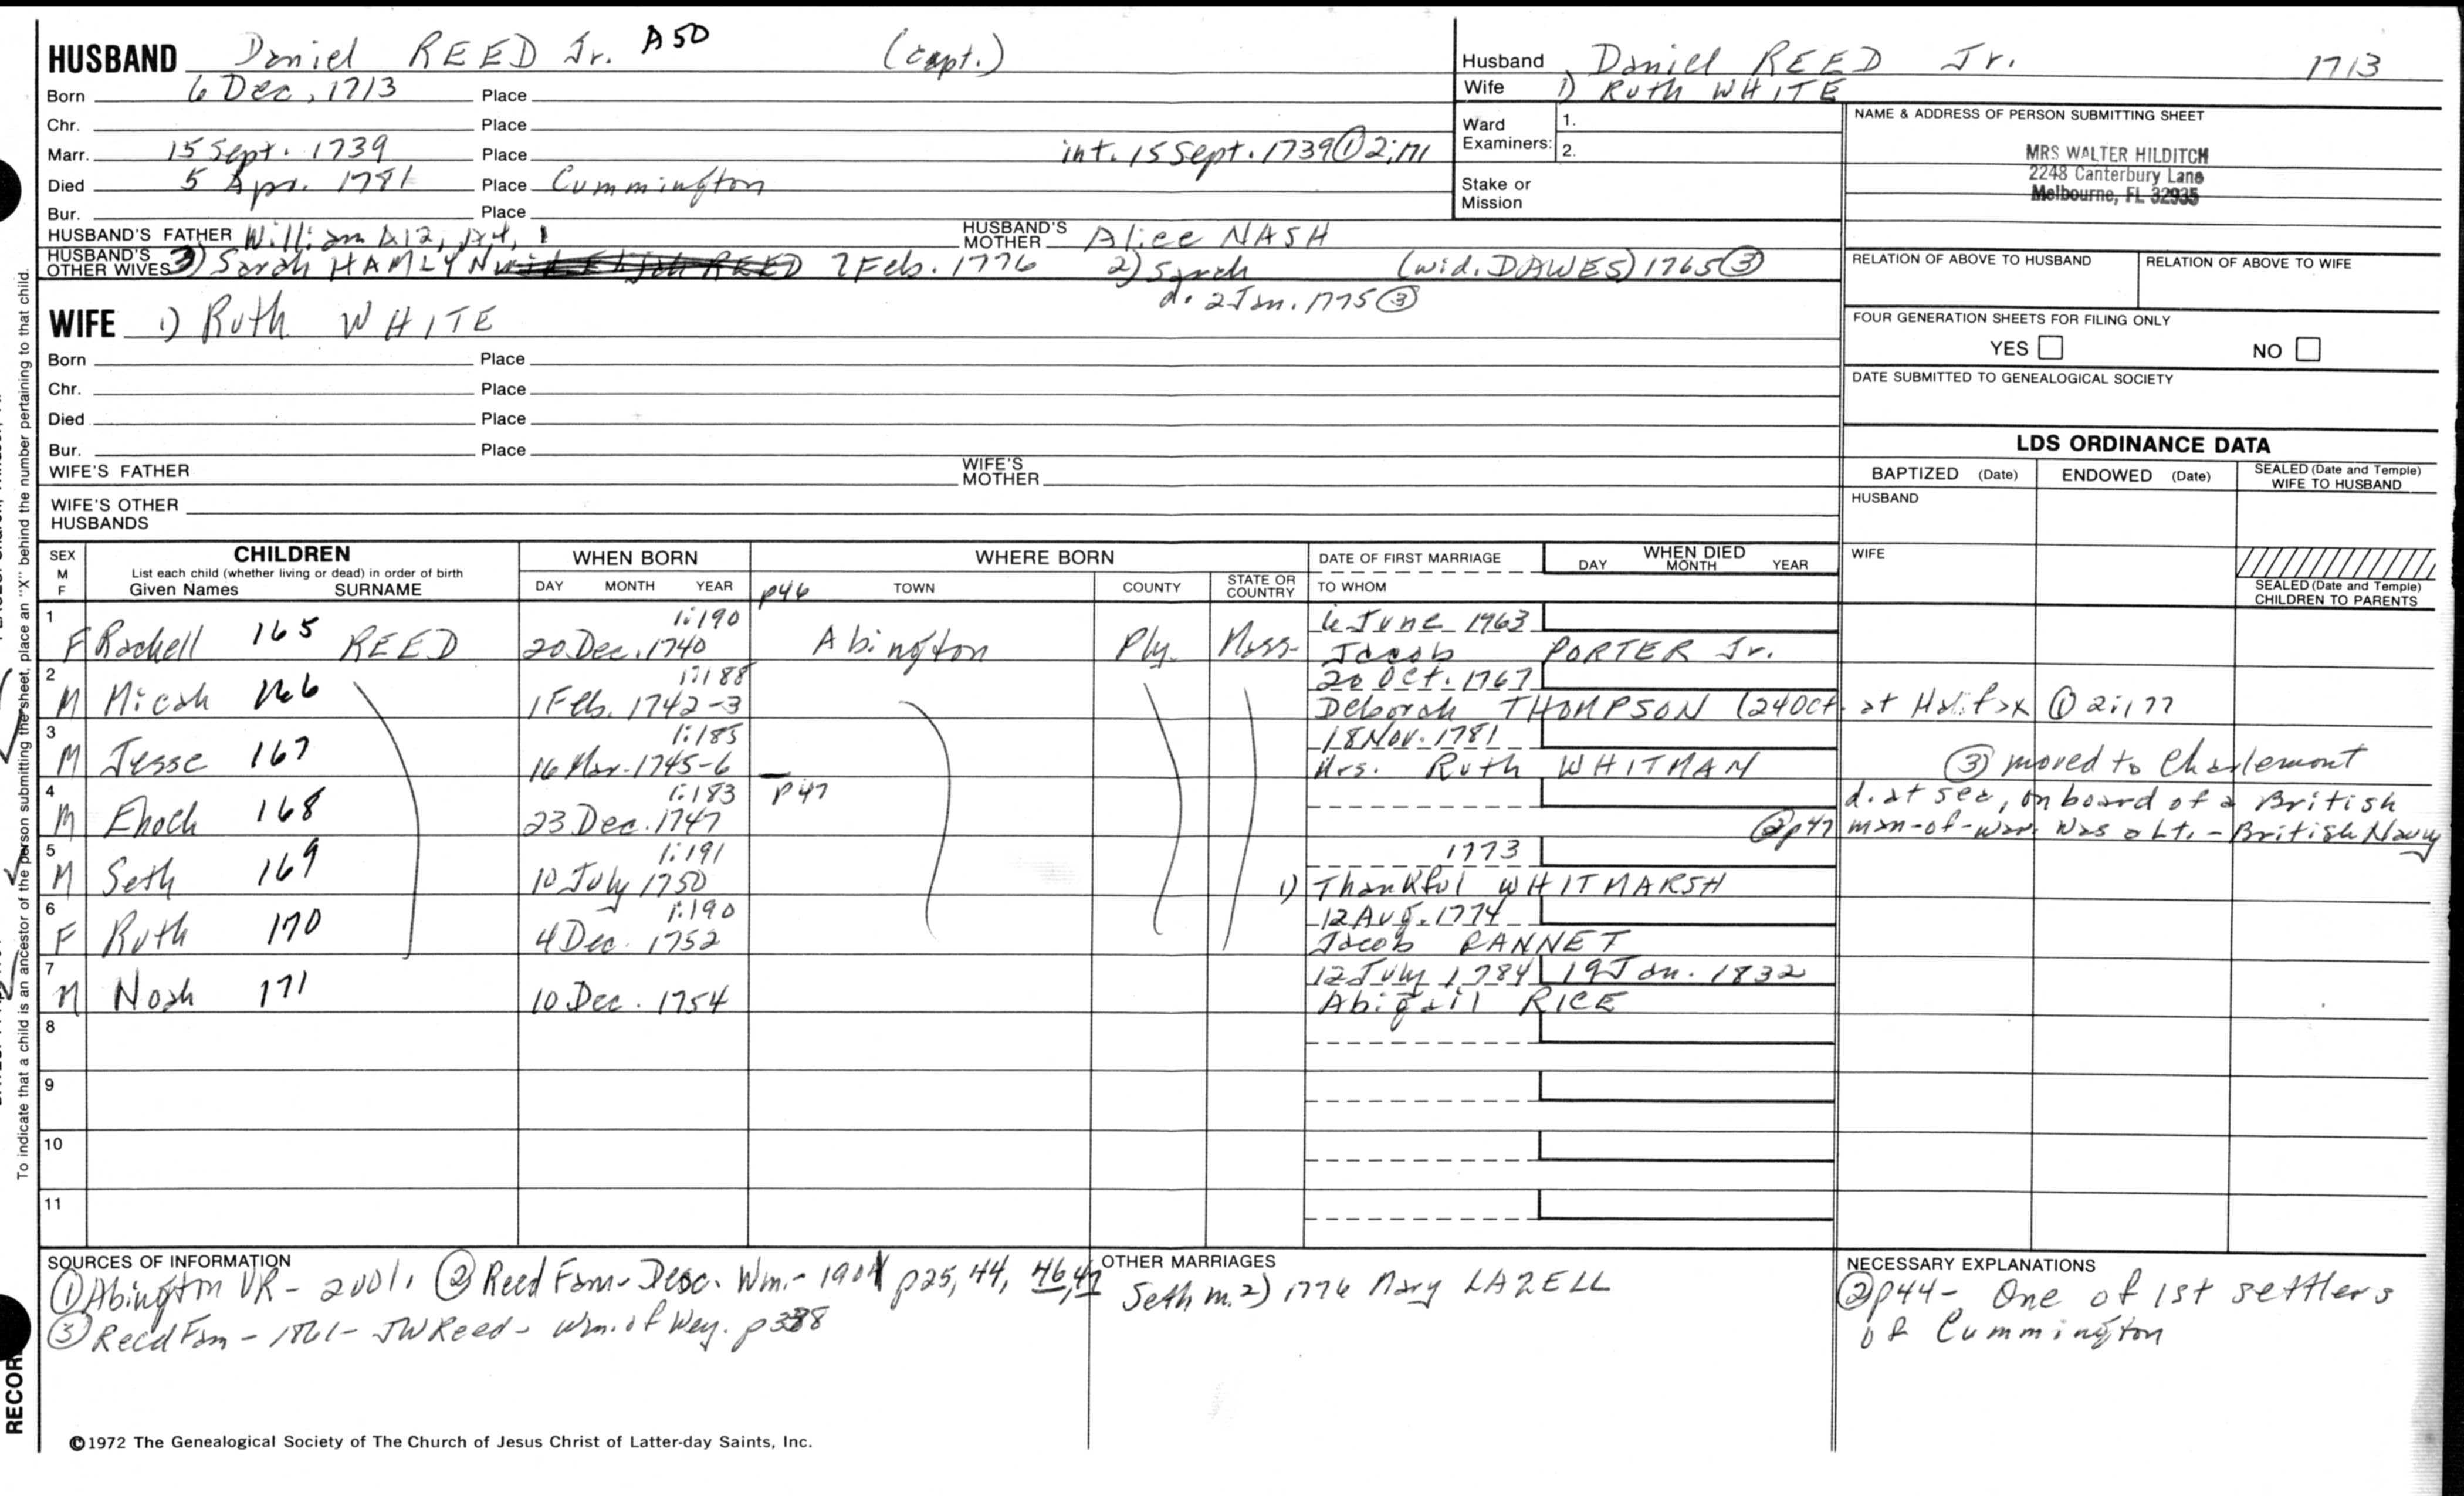 HUSBAND Daniel REED Jr. A50 (Capt.)
Born 6 Dec, 1713 Place
Chr. Place
Marr. 15 Sept. 1739 Place int. 15 Sept. 1739 ① 2:171
Died 5 Apr. 1781 Place Cummington
Bur. Place
HUSBAND'S FATHER William A12, A4, 1 HUSBAND'S MOTHER Alice NASH
HUSBAND'S OTHER WIVES 3) Sarah HAMLYN 7 Feb. 1776 2) Sarah (wid. DAWES) 1765 ③
d. 2 Jan. 1775 ③
WIFE 1) Ruth WHITE
Born Place
Chr. Place
Died Place
Bur. Place
WIFE'S FATHER WIFE'S MOTHER
WIFE'S OTHER HUSBANDS
Husband Daniel REED Jr. 1713
Wife 1) Ruth WHITE
Ward Examiners: 1.
2.
Stake or Mission
NAME & ADDRESS OF PERSON SUBMITTING SHEET
MRS WALTER HILDITCH
2248 Canterbury Lane
Melbourne, FL 32935
RELATION OF ABOVE TO HUSBAND RELATION OF ABOVE TO WIFE
FOUR GENERATION SHEETS FOR FILING ONLY
YES NO
DATE SUBMITTED TO GENEALOGICAL SOCIETY
LDS ORDINANCE DATA
BAPTIZED (Date) ENDOWED (Date) SEALED (Date and Temple) WIFE TO HUSBAND
HUSBAND
WIFE
SEALED (Date and Temple) CHILDREN TO PARENTS
SEX M F
CHILDREN
List each child (whether living or dead) in order of birth
Given Names SURNAME
WHEN BORN
DAY MONTH YEAR
WHERE BORN
p46 TOWN COUNTY STATE OR COUNTRY
DATE OF FIRST MARRIAGE
TO WHOM
WHEN DIED
DAY MONTH YEAR
1 1:190 6 June 1763
F Rachell 165 REED 20 Dec. 1740 Abington Ply. Mass. Jacob PORTER Jr.
2 1:188 20 Oct. 1767
M Micah 166 1 Feb. 1742-3 Deborah THOMPSON (24 Oct. at Halifax ① 2:177
3 1:185 18 Nov. 1781
M Jesse 167 16 Mar. 1745-6 Mrs. Ruth WHITMAN ③ moved to Charlemont
4 1:183 p47 d. at sea, on board of a British
M Enoch 168 23 Dec. 1747 ② p47 man-of-war. Was a Lt. - British Navy
5 1:191 1773
M Seth 169 10 July 1750 1) Thankful WHITMARSH
6 1:190 12 Aug. 1774
F Ruth 170 4 Dec. 1752 Jacob RANNET
7 12 July 1784 19 Jan. 1832
M Noah 171 10 Dec. 1754 Abigail RICE
8
9
10
11
SOURCES OF INFORMATION
① Abington VR - 2 vol. ② Reed Fam - Desc. Wm. - 1901 p25, 44, 46, 47
③ Reed Fam - 1861 - JW Reed - Wm. of Wey. p388
OTHER MARRIAGES
Seth m. 2) 1776 Mary LAZELL
NECESSARY EXPLANATIONS
② p44 - One of 1st settlers
of Cummington
©1972 The Genealogical Society of The Church of Jesus Christ of Latter-day Saints, Inc.
To indicate that a child is an ancestor of the person submitting the sheet, place an "X" behind the number pertaining to that child.